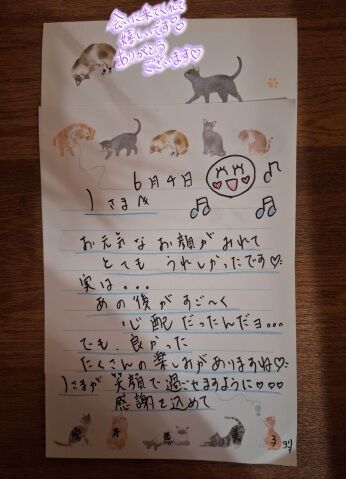 会いに来てくれて
嬉しいです♡
ありがとう
ございます♡
6月4日
Jさまへ
お元気なお顔がみれて
とても うれしかったです♡
実は...
あの後がすご〜く
心配だったんだョ...
でも、良かった
たくさんの楽しみがありますね♡
Jさまが笑顔で過ごせますように♡♡♡
感謝を込めて
恵美子
ヨリ